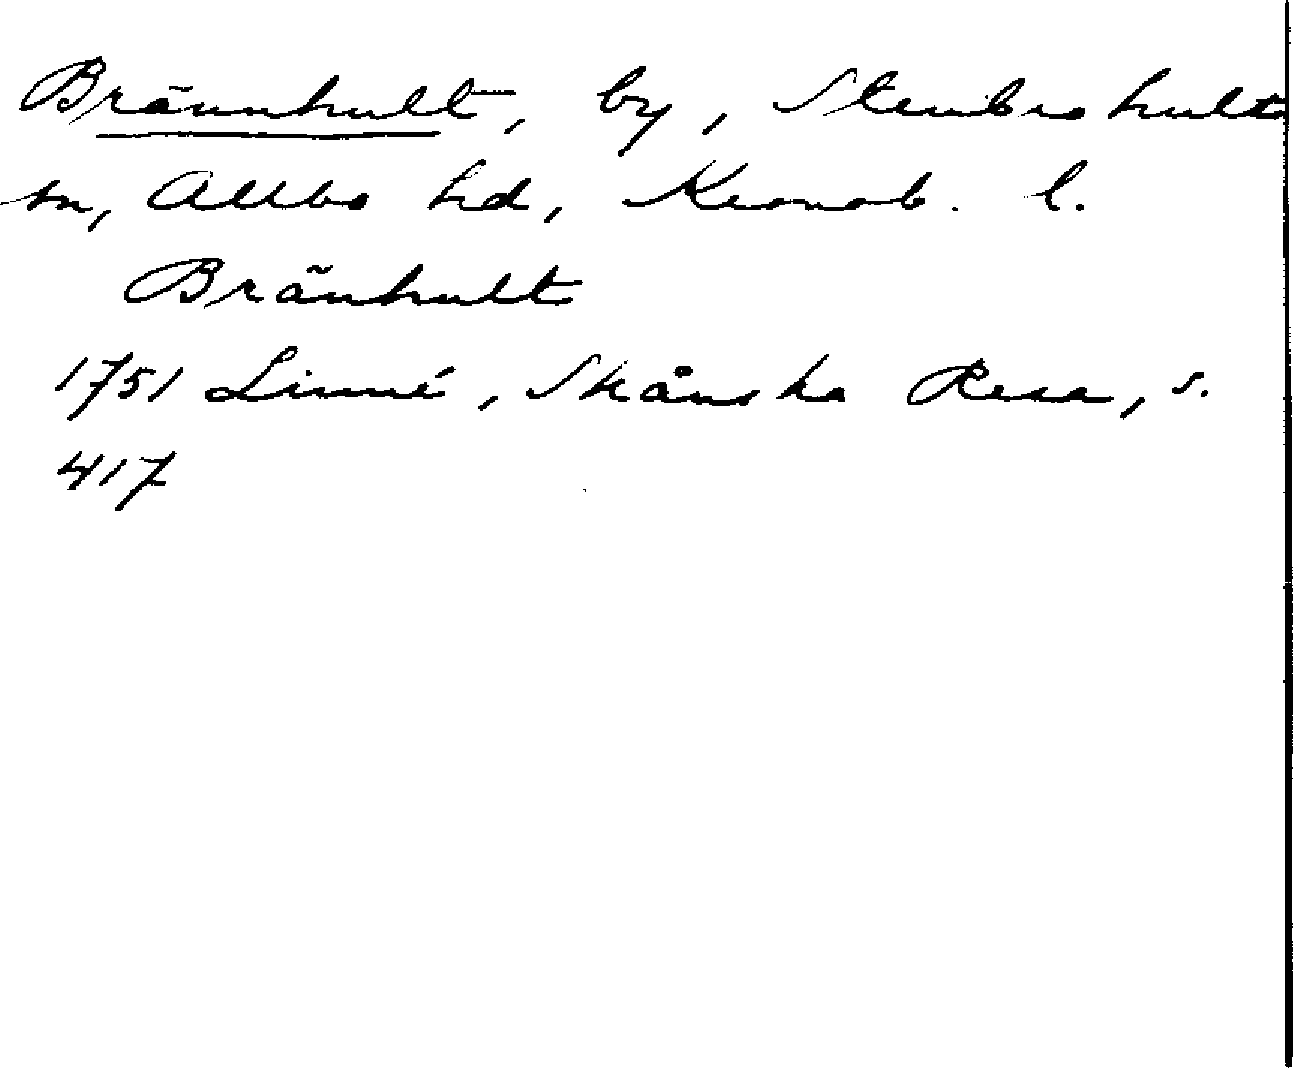 Brännhult, by, Stenbrohult
sn, Allbo hd, Kronob. l.
Bränhult
1751 Linné, Skånska Resa, s.
417